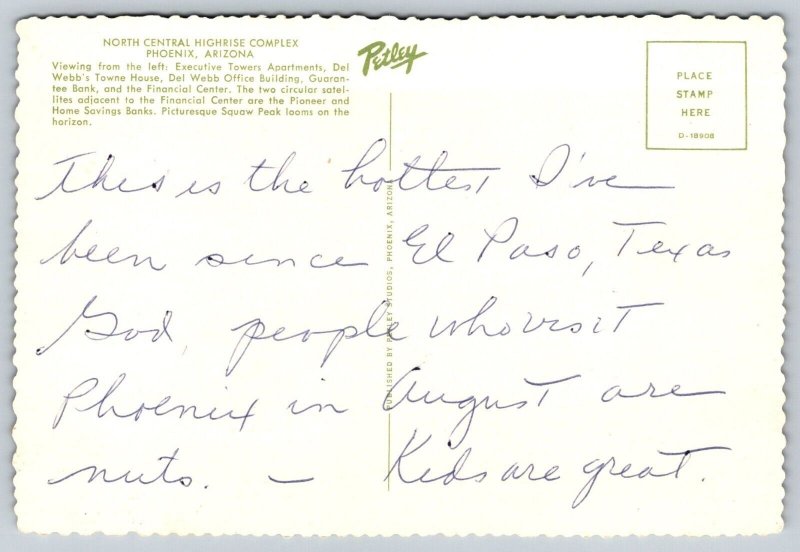 NORTH CENTRAL HIGHRISE COMPLEX
PHOENIX, ARIZONA
Viewing from the left: Executive Towers Apartments, Del
Webb's Towne House, Del Webb Office Building, Guaran-
tee Bank, and the Financial Center. The two circular satel-
lites adjacent to the Financial Center are the Pioneer and
Home Savings Banks. Picturesque Squaw Peak looms on the
horizon.
Petley
PLACE
STAMP
HERE
D-18908
PUBLISHED BY PETLEY STUDIOS, PHOENIX, ARIZONA
This is the hottest I've
been since El Paso, Texas
God, people who visit
Phoenix in August are
nuts. — Kids are great.